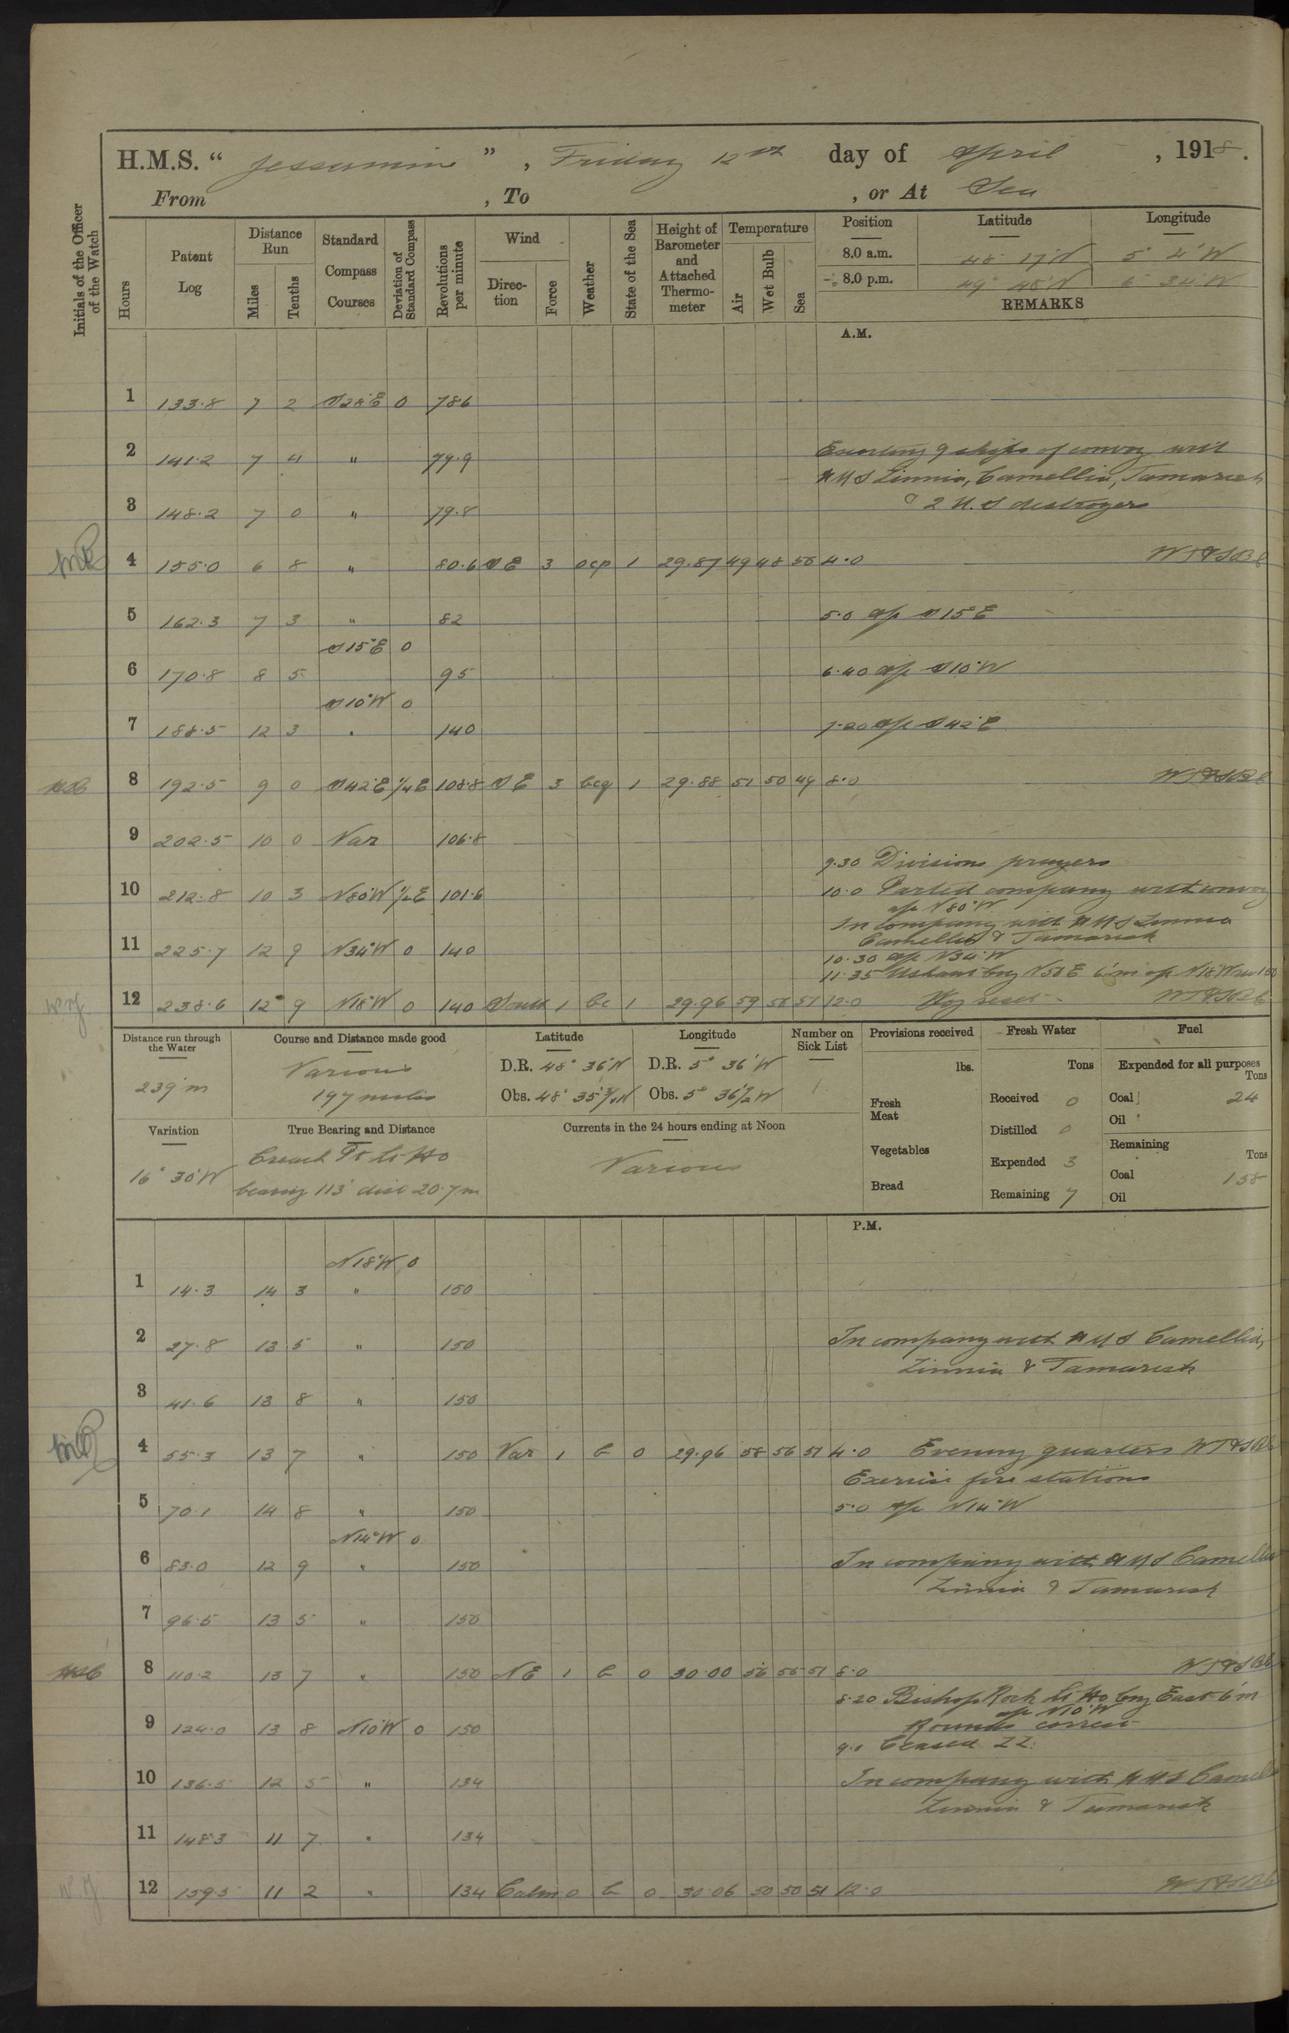 H.M.S. “ Jessamine ” , Friday 12th day of April , 1918.
From , To , or At Sea
Initials of the Officer of the Watch
Hours
Patent Log
Distance Run
Miles
Tenths
Standard Compass Courses
Deviation of Standard Compass
Revolutions per minute
Wind
Direction
Force
Weather
State of the Sea
Height of Barometer and Attached Thermometer
Temperature
Air
Wet Bulb
Sea
Position Latitude Longitude
8.0 a.m. 48° 17'N 5° 4'W
8.0 p.m. 49° 48'N 6° 34'W
REMARKS
A.M.
1 133.8 7 2 S28°E 0 78.6
2 141.2 7 4 " 79.9 Escorting 9 ships of convoy with
HMS Zinnia, Camellia, Tamarisk
3 148.2 7 0 " 79.8 & 2 U.S destroyers
4 155.0 6 8 " 80.6 SE 3 ocp 1 29.87 49 48 50 4.0
5 162.3 7 3 " 82 5.0 a/c S15°E
S15°E 0
6 170.8 8 5 95 6.40 a/c S10°W
S10°W 0
7 188.5 12 3 " 140 7.20 a/c S42°E
8 192.5 9 0 S42°E ¼E 108.8 SE 3 bcq 1 29.88 51 50 49 8.0
9 202.5 10 0 Var 106.8
9.30 Divisions prayers
10 212.8 10 3 N80°W ½E 101.6 10.0 Parted company with convoy
a/c N80°W
In company with HMS Zinnia
Camellia & Tamarisk
11 225.7 12 9 N34°W 0 140 10.30 a/c N34°W
11.35 Ushant brg N56E 6'm a/c N18°W
12 238.6 12 9 N18°W 0 140 South 1 bc 1 29.96 59 56 51 12.0 Log reset
Distance run through the Water
239'm
Course and Distance made good
Various
197 miles
Latitude
D.R. 48° 36'N
Obs. 48° 35'¾N
Longitude
D.R. 5° 36'W
Obs. 5° 36½'W
Number on Sick List
1
Provisions received
lbs.
Fresh Meat
Vegetables
Bread
Fresh Water
Tons
Received 0
Distilled 0
Expended 3
Remaining 7
Fuel
Expended for all purposes
Tons
Coal 24
Oil
Remaining
Tons
Coal 158
Oil
Variation
16° 30'W
True Bearing and Distance
Creach Pt Lt Ho
bearing 113° dist 20.7m
Currents in the 24 hours ending at Noon
Various
P.M.
N18°W 0
1 14.3 14 3 " 150
2 27.8 13 5 " 150 In company with HMS Camellia,
Zinnia & Tamarisk
3 41.6 13 8 " 150
4 55.3 13 7 " 150 Var 1 b 0 29.96 58 56 51 4.0 Evening quarters
Exercise fire stations
5 70.1 14 8 " 150 5.0 a/c N14°W
N14°W 0
6 83.0 12 9 " 150 In company with HMS Camellia
Zinnia & Tamarisk
7 96.5 13 5 " 150
8 110.2 13 7 " 150 NE 1 b 0 30.00 56 55 51 8.0
8.20 Bishop Rock Lt Ho brg East 6'm
a/c N10°W
9 124.0 13 8 N10°W 0 150 Rounds correct
9.0 Ceased ZZ
10 136.5 12 5 " 134 In company with HMS Camellia
Zinnia & Tamarisk
11 148.3 11 7 " 134
12 159.5 11 2 " 134 Calm 0 b 0 30.06 50 50 51 12.0